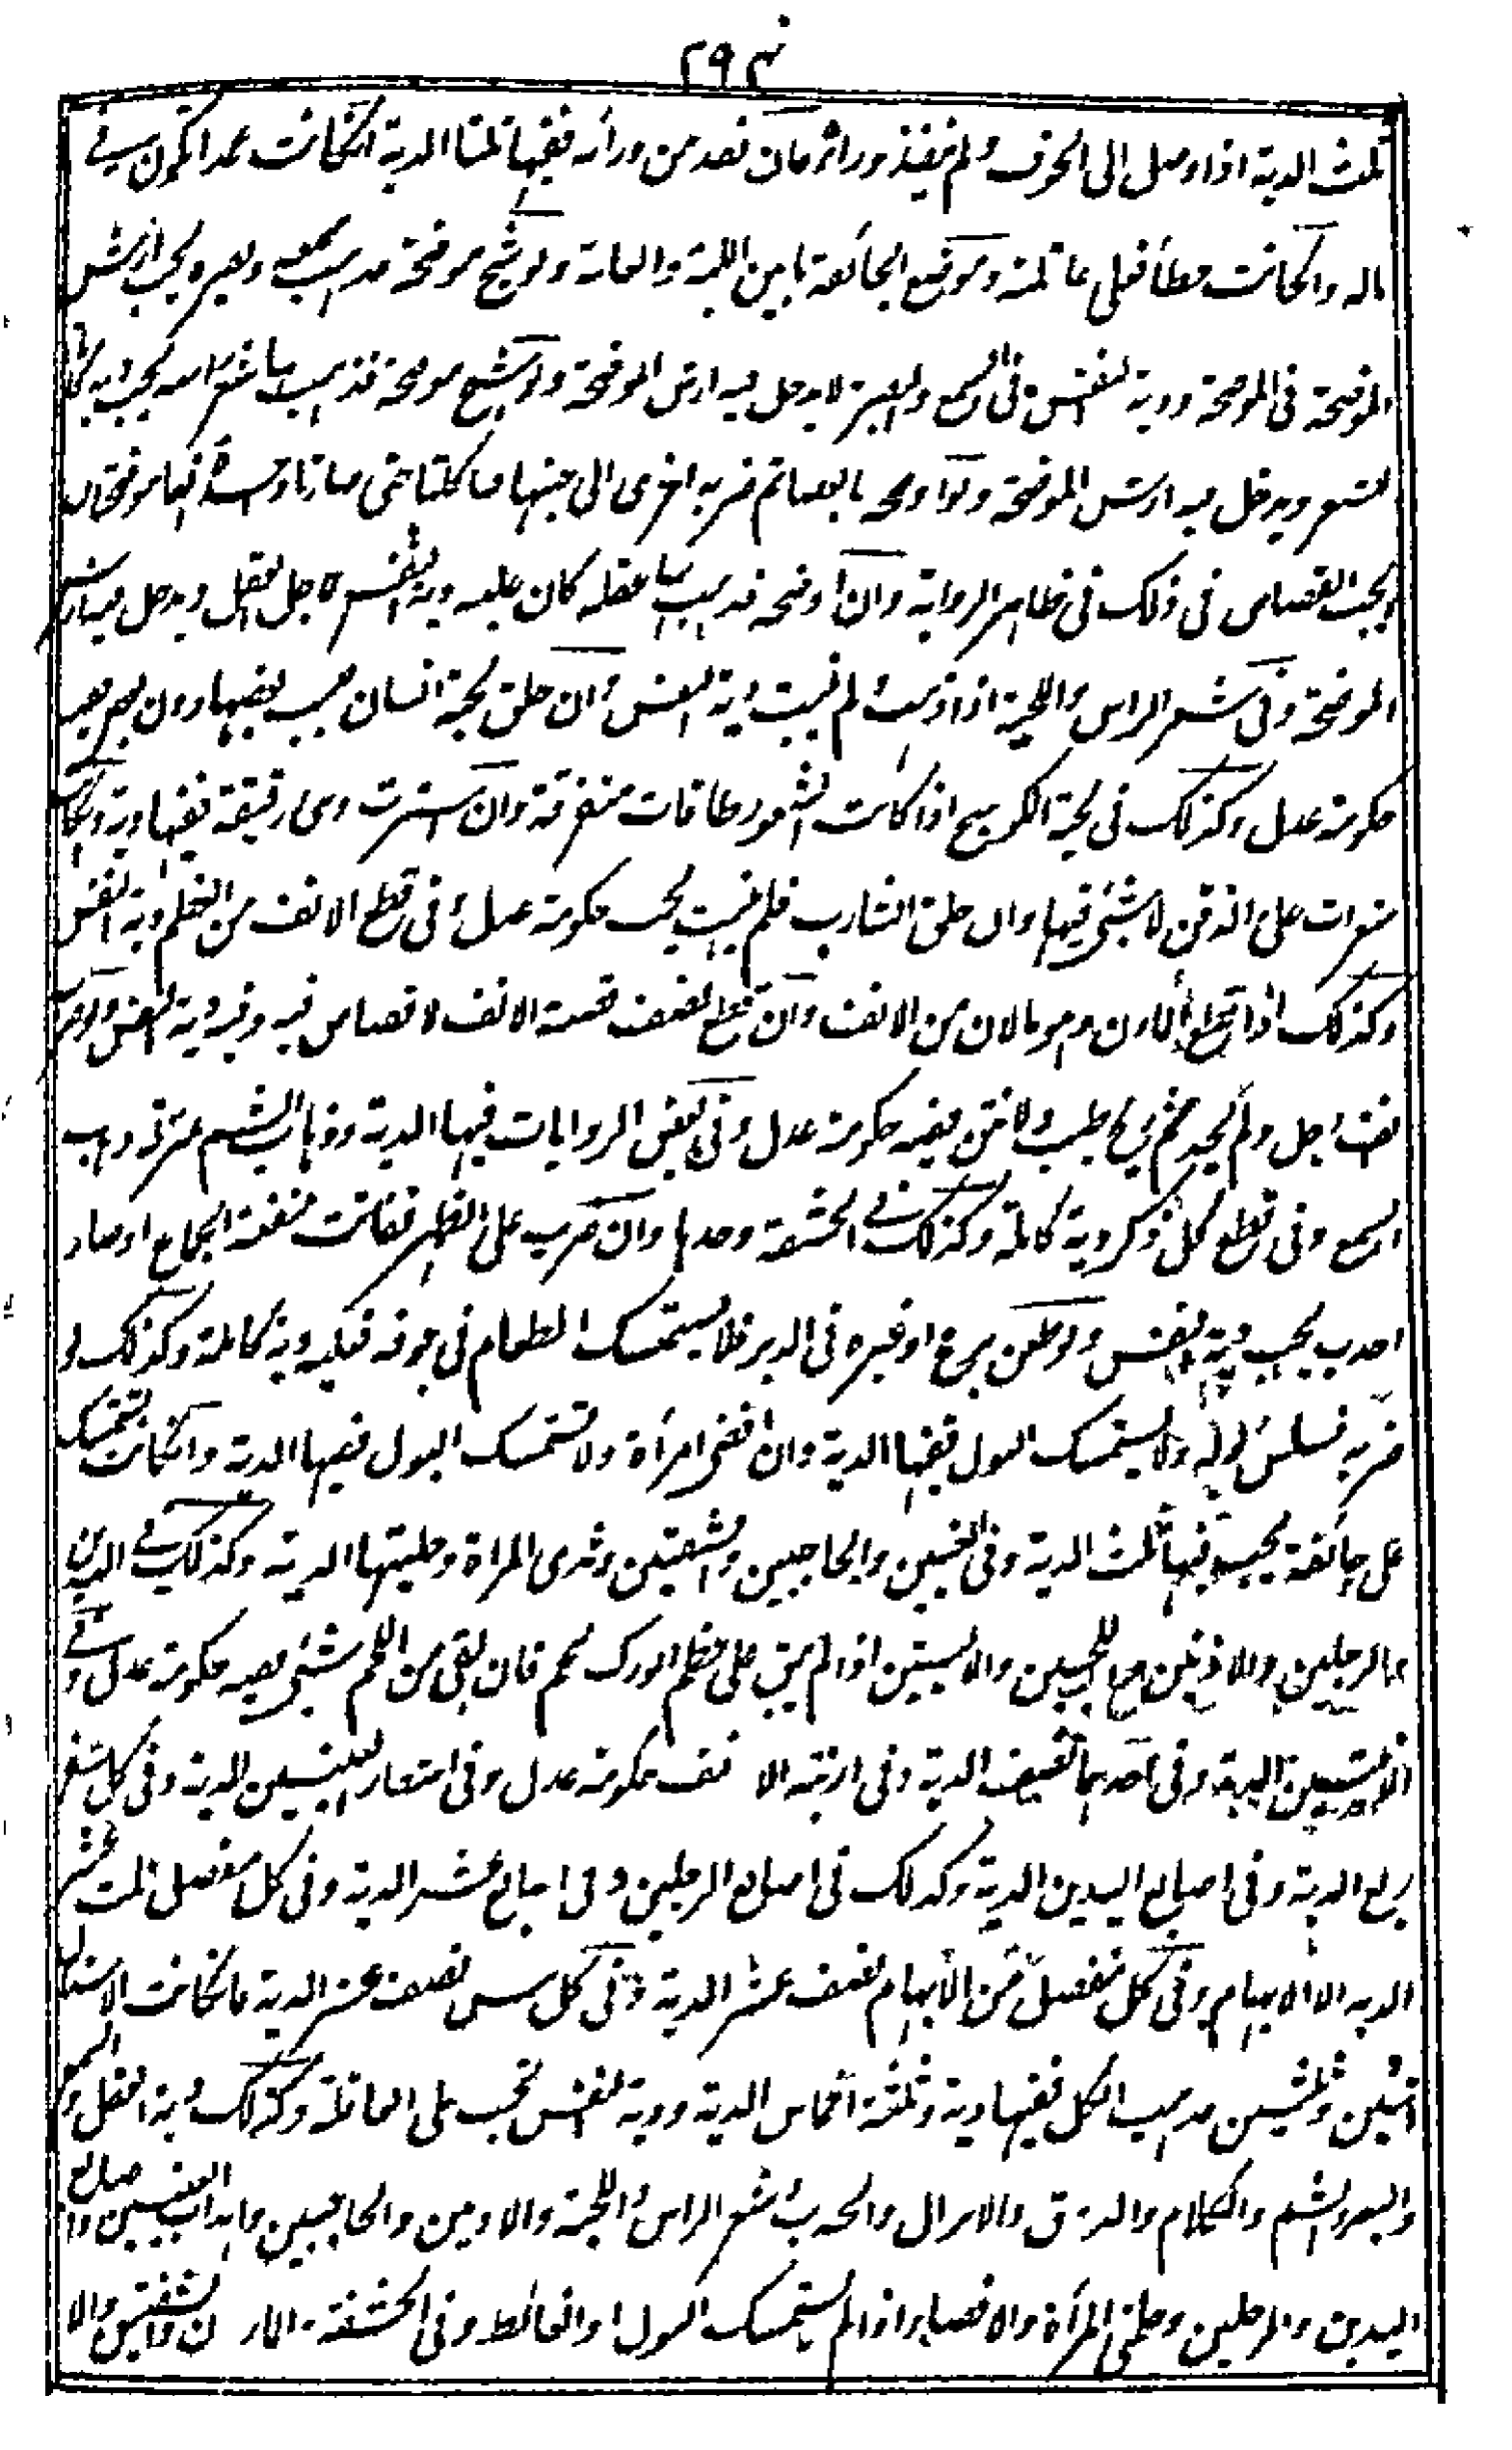 ٢٩٣
ثلث الدية اذا وصل الى الجوف ولم ينفذ وراءه فان نفذ من ورائه ففيها ثلثا الدية انكانت عمدا تكون فى
ماله وانكانت خطأ فعلى عاقلته وموضع الجائفة ما بين اللبة والعانة ولو شج موضحة فذهب سمعه وبصره يجب ارش
الموضحة فى الموضحة ودية النفس فى السمع والبصر لا يدخل فيه ارش الموضحة ولو شج موضحة فذهب بها شعر راسه يجب دية
الشعر ويدخل فيه ارش الموضحة ولو اوضحه بالعصا ثم ضربه اخرى الى جنبها فتاكلتا حتى صارتا واحدة فهما موضحتان
لا يجب القصاص فى ذلك فى ظاهر الرواية وان اوضحه فذهب بها عقله كان عليه دية النفس لاجل العقل ويدخل فيه ارش
الموضحة وفى شعر الراس واللحية اذا ذهب ولم ينبت دية النفس وان حلق لحية انسان فنبت بعضها دون بعض ففيه
حكومة عدل وكذلك فى لحية الكوسج اذا كانت الشعور طاقات متفرقة وان استترت وهى رقيقة ففيها دية وانكانت
شعرات على الذقن لا شىء فيها وان حلق الشارب فلم ينبت يجب حكومة عدل وفى قطع الانف من العظم دية النفس
وكذلك اذا قطع المارن وهو ما لان من الانف وان قطع نصف قصبة الانف لا قصاص فيه وفيه دية النفس ولو ضرب
انف رجل ولم يجد شم ريح طيب ولا نتن ففيه حكومة عدل وفى بعض الروايات فيها الدية وذهاب الشم بمنزلة ذهاب
السمع وفى قطع كل ذكر دية كاملة وكذلك فى الحشفة وحدها وان ضرب على الظهر ففاتت منفعة الجماع او صار
احدب يجب دية النفس ولو طعن برمح او غيره فى الدبر فلا يستمسك الطعام فى جوفه فعليه دية كاملة وكذلك لو
ضربه فسلس بوله ولا يستمسك البول ففيها الدية وان افضى امرأة ولا تستمسك البول ففيها الدية وانكانت تستمسك
فهى جائفة يجب فيها ثلث الدية وفى العينين والحاجبين والشفتين وثدى المرأة وحلمتيها الدية وكذلك فى اليدين
والرجلين والاذنين مع اللحيين والاليتين اذا لم يبق على عظم الورك لحم فان بقى من اللحم شىء ففيه حكومة عدل وفى
الانثيين الدية وفى احدهما نصف الدية وفى ارنبة الانف حكومة عدل وفى اشفار العينين الدية وفى كل شفر
ربع الدية وفى اصابع اليدين الدية وكذلك فى اصابع الرجلين وفى اصبع عشر الدية وفى كل مفصل ثلث عشر
الدية الا الابهام وفى كل مفصل من الابهام نصف عشر الدية وفى كل سن نصف عشر الدية فانكانت الاسنان
اثنين وثلثين فذهب الكل ففيها دية وثلثة اخماس الدية ودية النفس تجب على العاقلة وكذلك دية العقل والسمع
والبصر والشم والكلام والذوق والانزال والحدب وشعر الراس واللحية والاذنين والحاجبين واهداب العينين واصابع
اليدين والرجلين وحلمتى المرأة والافضاء اذا لم يستمسك البول او الغائط وفى الحشفة والمارن والشفتين والا